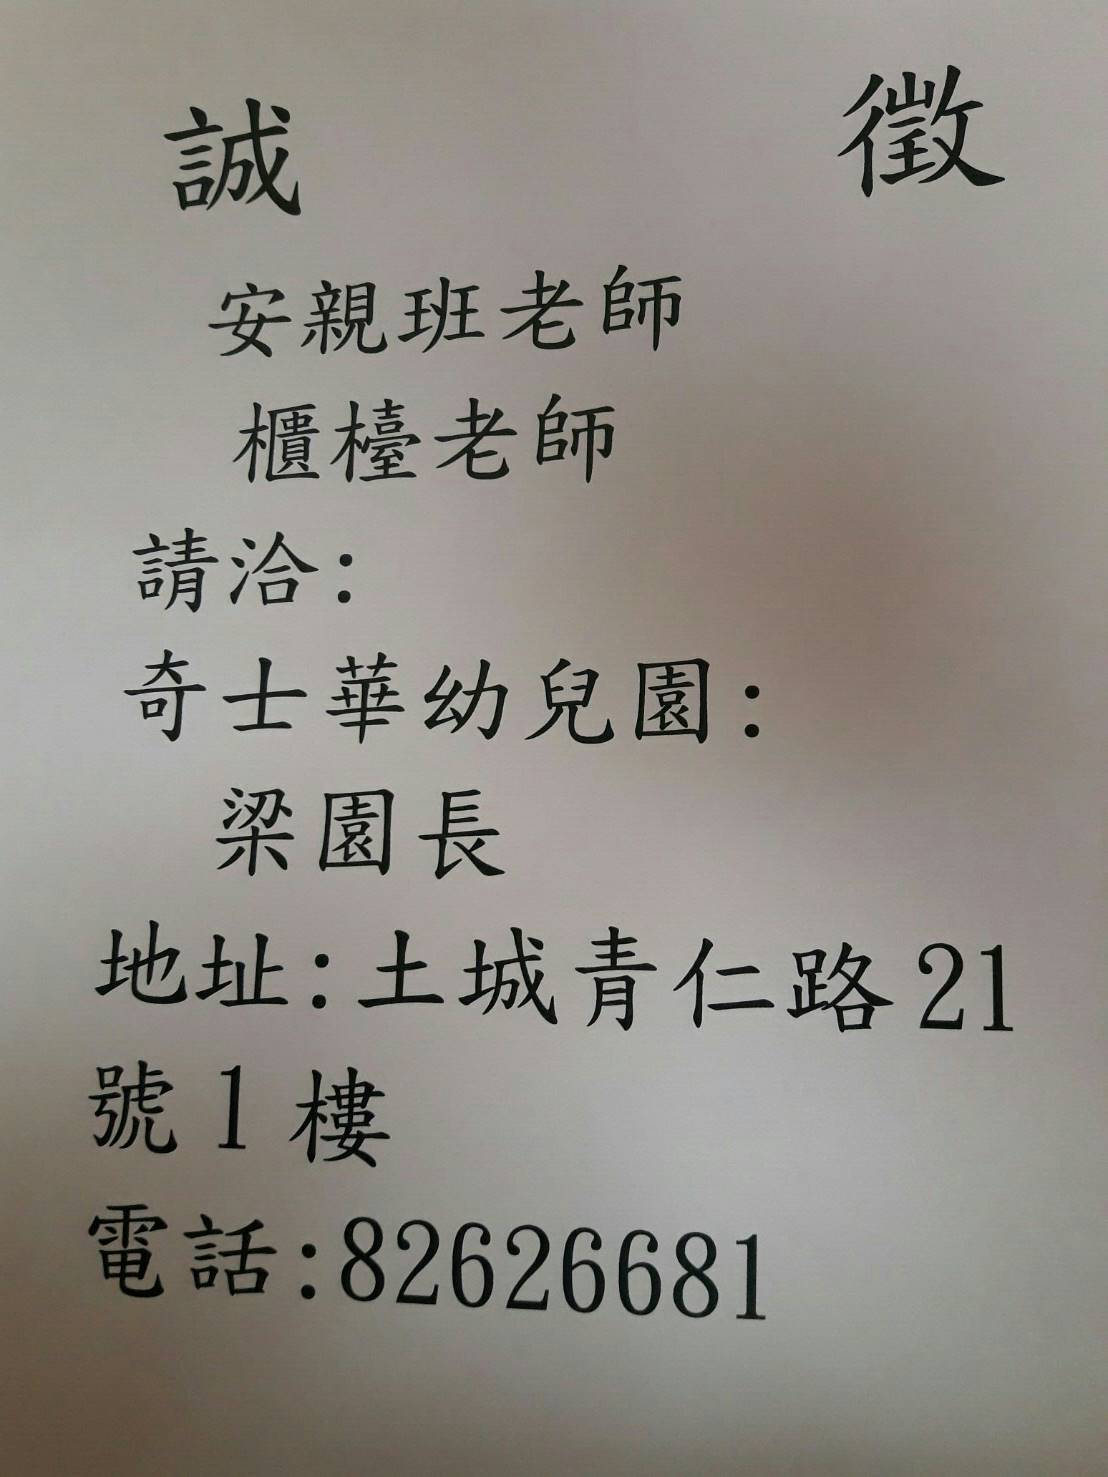 誠 徵
安親班老師
櫃檯老師
請洽:
奇士華幼兒園:
梁園長
地址:土城青仁路21
號1樓
電話:82626681